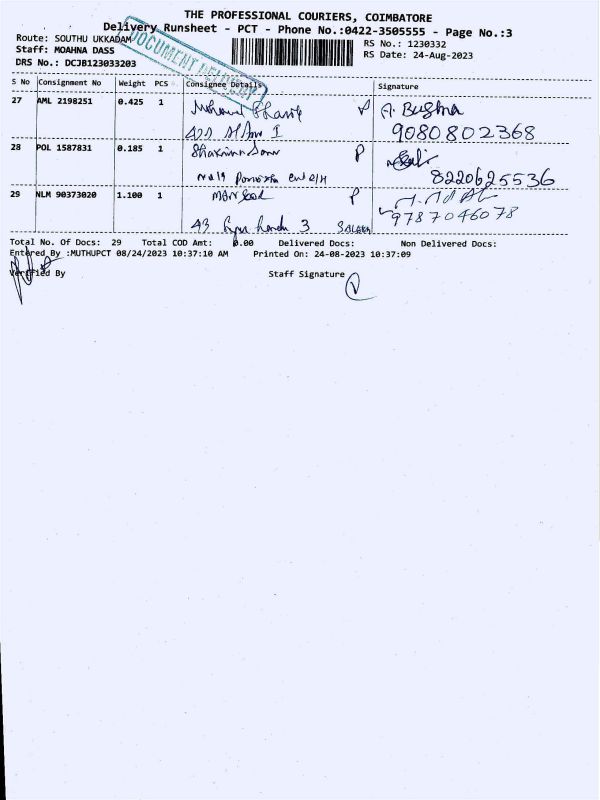 THE PROFESSIONAL COURIERS, COIMBATORE
Delivery Runsheet - PCT - Phone No.:0422-3505555 - Page No.:3
Route: SOUTHU UKKADAM
RS No.: 1230332
Staff: MOAHNA DASS
RS Date: 24-Aug-2023
DRS No.: DCJB123033203
DOCUMENT DELIVERY
S No Consignment No Weight PCS Consignee Details Signature
27 AML 2198251 0.425 1 P A. Bushna
9080802368
28 POL 1587831 0.185 1 P
8220625536
29 NLM 90373020 1.100 1 Mansoor P
43 3 9787046078
Total No. Of Docs: 29 Total COD Amt: 0.00 Delivered Docs: Non Delivered Docs:
Entered By :MUTHUPCT 08/24/2023 10:37:10 AM Printed On: 24-08-2023 10:37:09
Verified By Staff Signature